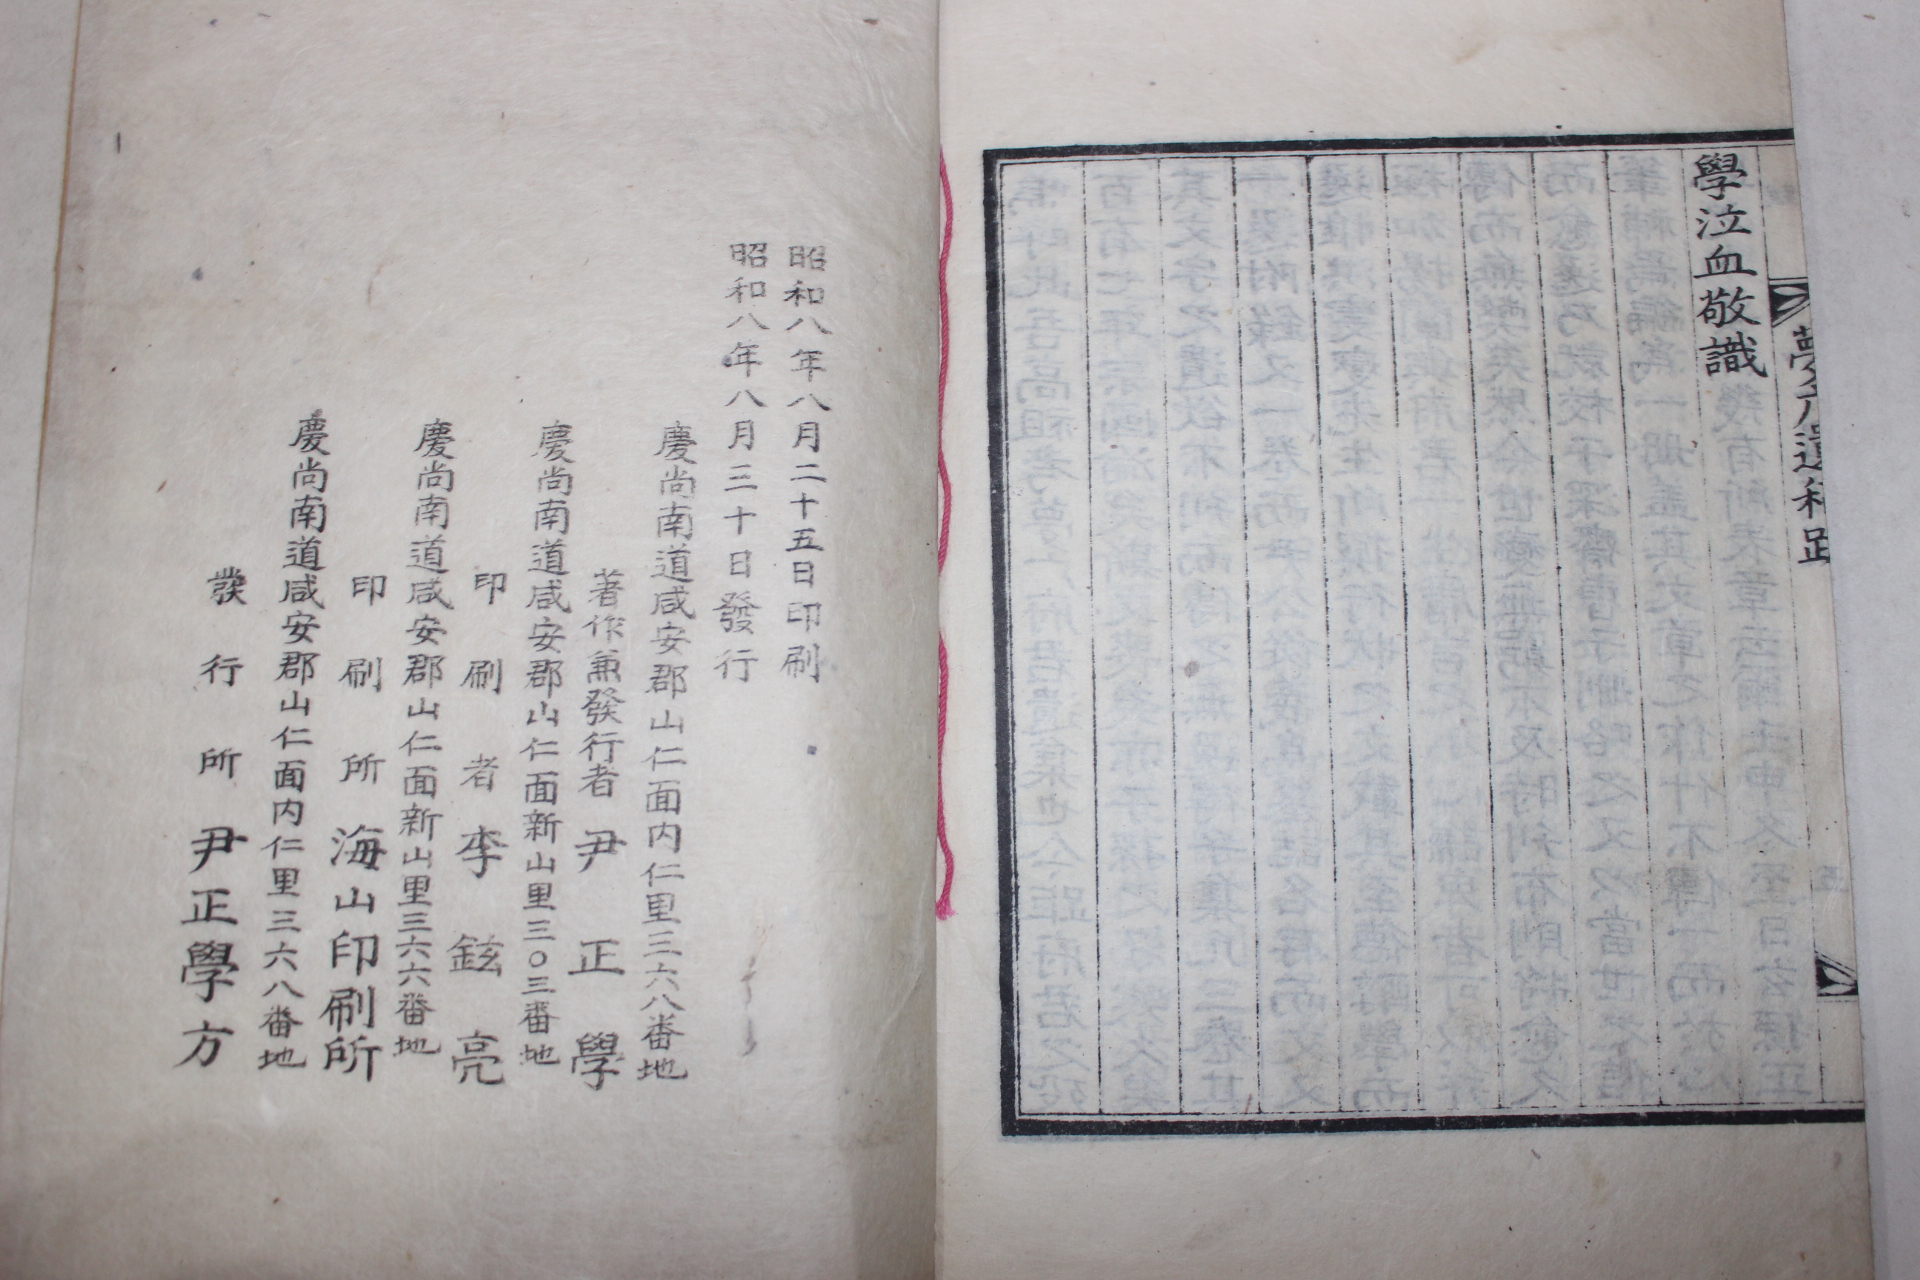 學泣血敬識
遺稿跋
昭和八年八月二十五日印刷
昭和八年八月三十日發行
慶尚南道咸安郡山仁面内仁里三六八番地
著作兼發行者 尹正學
慶尚南道咸安郡山仁面新山里三〇三番地
印刷者 李鉉亮
慶尚南道咸安郡山仁面新山里三六六番地
印刷所 海山印刷所
慶尚南道咸安郡山仁面内仁里三六八番地
發行所 尹正學方